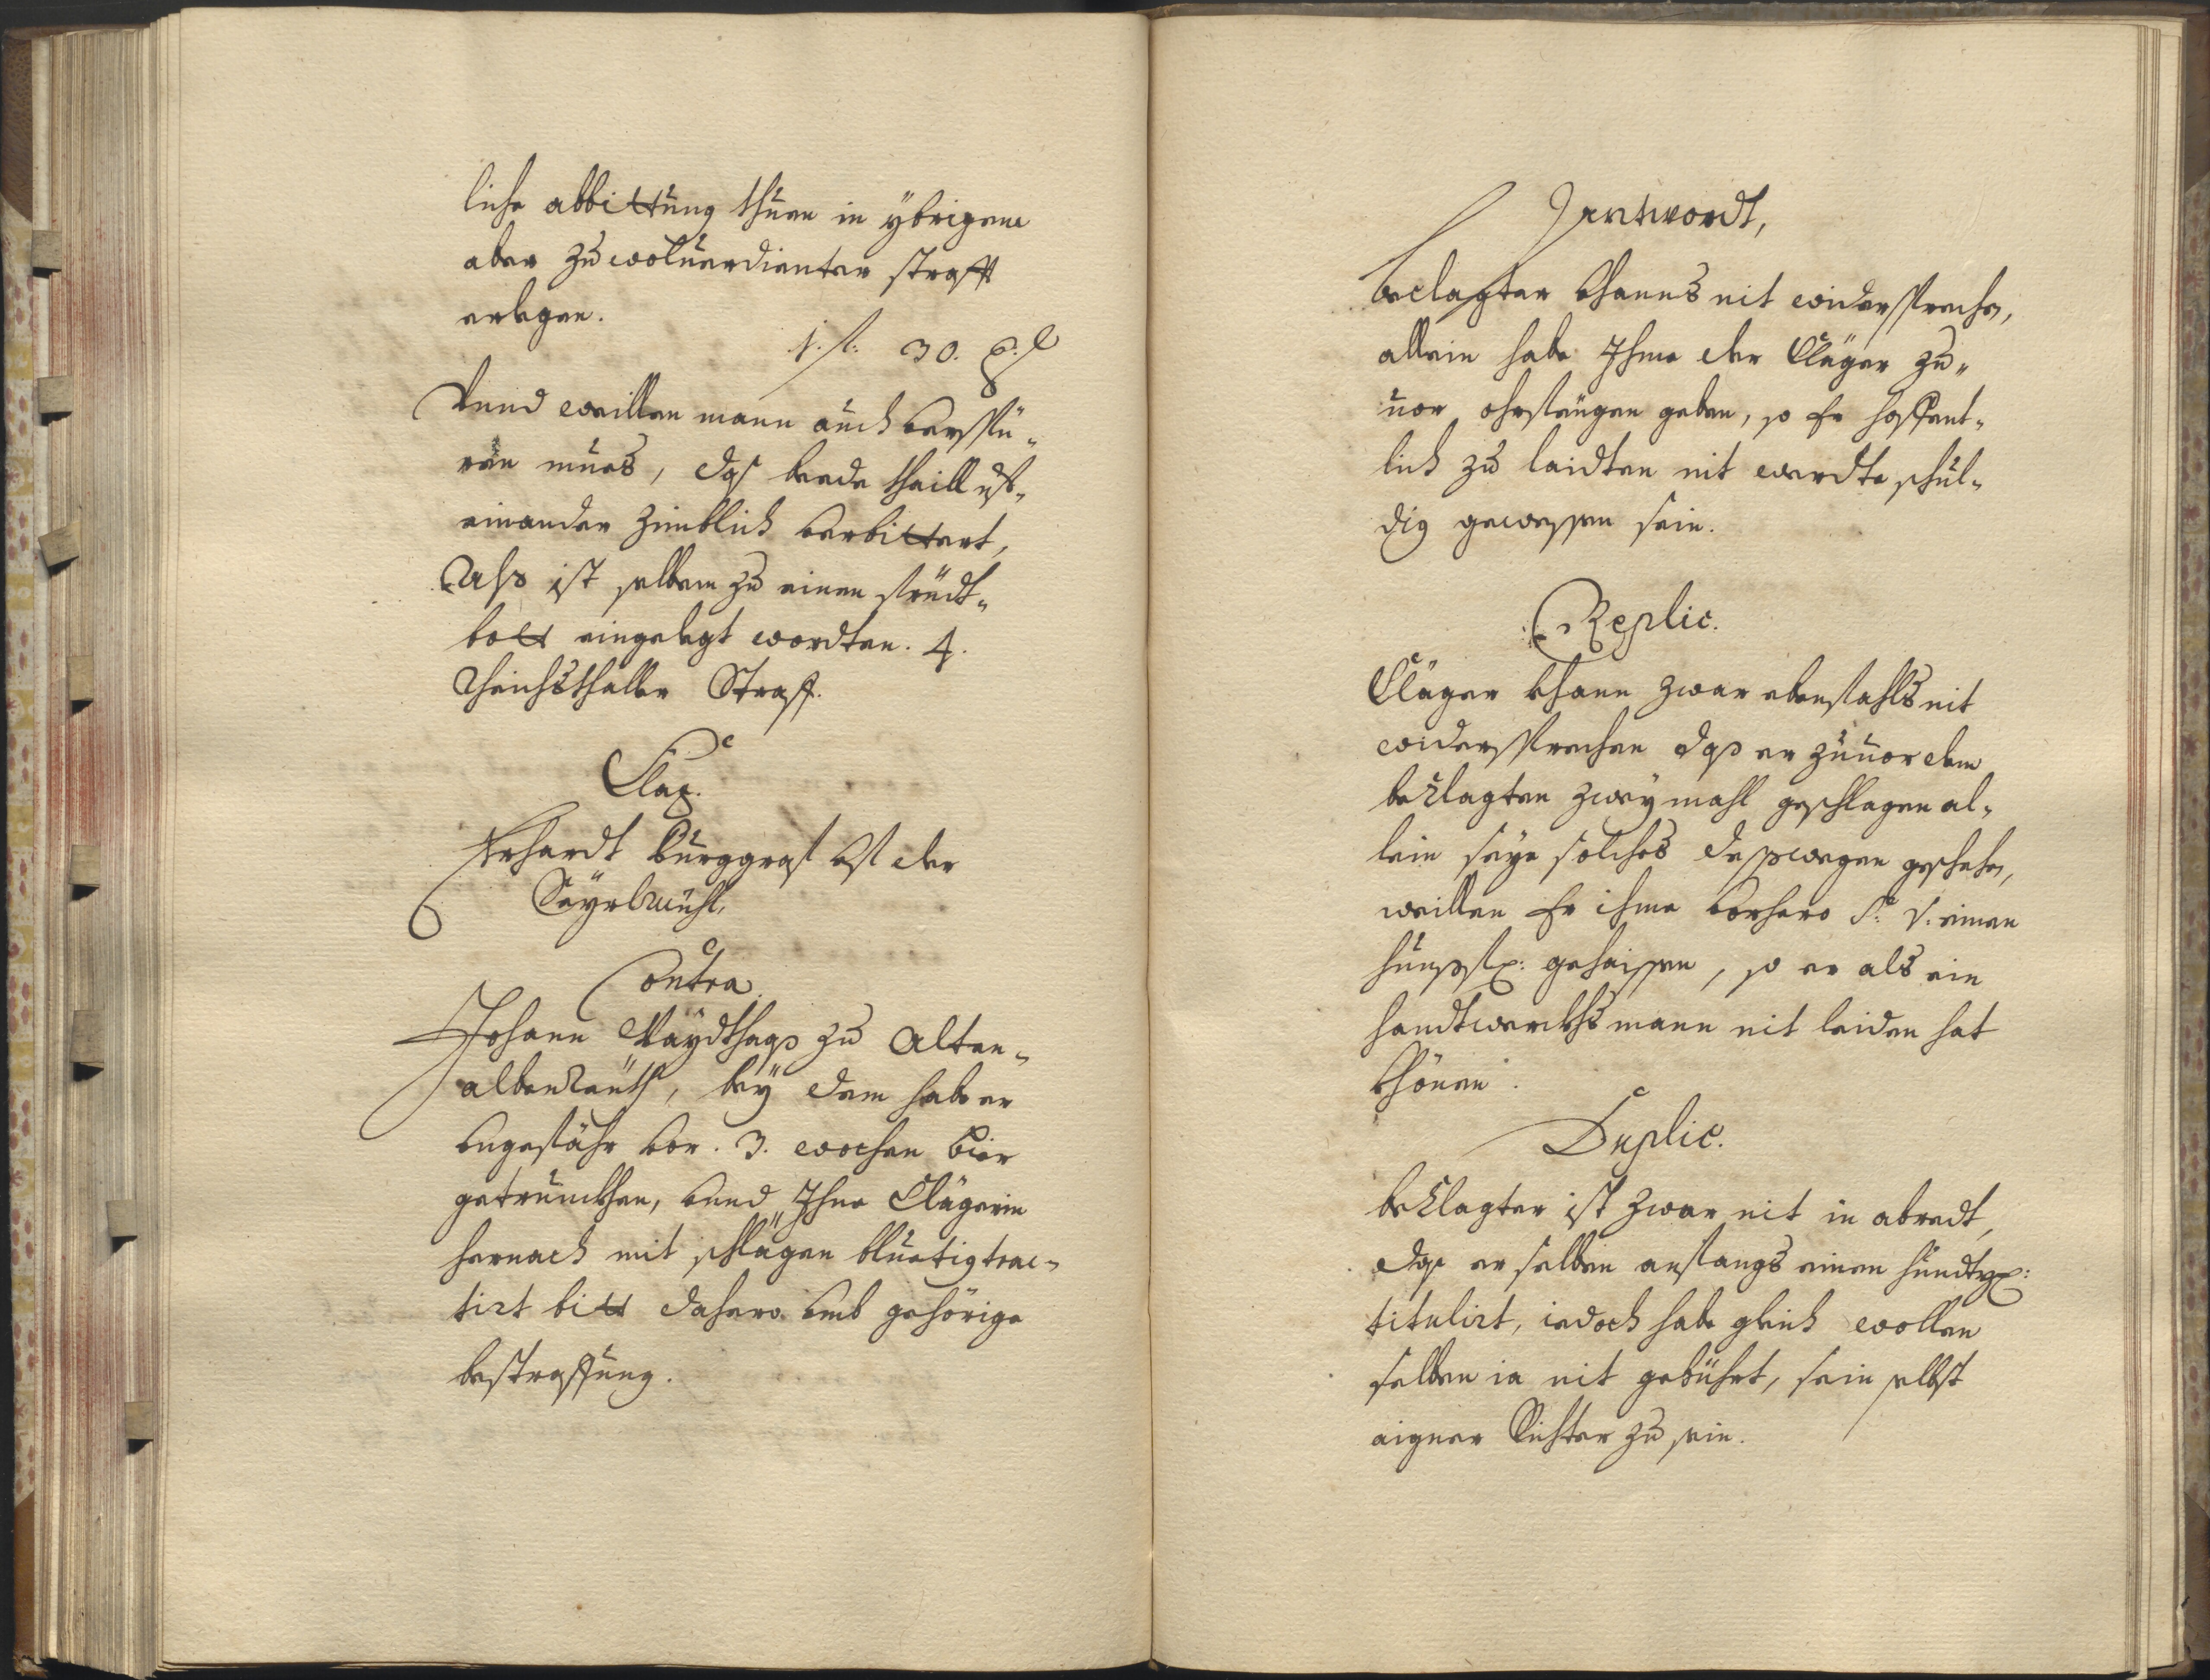 liche abbittung thuen in ÿbrigem
aber zu wolverdienter straff
erlegen.
1. fl: 30. x:
Vnnd weillen mann auch verspü-
ren mues, das beede theill vf-
einander zimblich verbittert,
Als ist selben zu einen
bott eingelegt wordten. 4.
Reichsthaller Straff.
Clag.
Erhardt Burggraf vf der
Säyrlmühl,
Contra
Johann Maÿdthas zu Alten-
albenreuth, beÿ dem habe er
vngefähr vor. 3. wochen Bier
getrunckhen, vnnd Ihne Clägerin
hernach mit schlägen bluetig trac-
tirt bitt dahero vmb gehörige
bestraffung.
Antwordt,
Beclagter khanns nit widersprechen,
allein habe Ihme der Cläger zu-
uor ohrfeigen geben, so Er hoffent-
lich zu leidten nit werdte schul-
dig gewessen sein.
Replic.
Cläger khann zwar ebenfahls nit
widersprechen das er zuuor dem
beklagten zweÿ mahl geschlagen al-
lein seye solches desswegen geschehen,
weillen Er ihme vorhero S: V: einen
hunssf: geheissen, so er als ein
handtwerckhsmann nit leiden hat
khönen.
Duplic.
beklagter ist zwar nit in abredt,
das er selben anfangs einen
titulirt, iedoch habe gleich wollen
selben ia nit gebührt, sein selbst
aigner Richter zu sein.